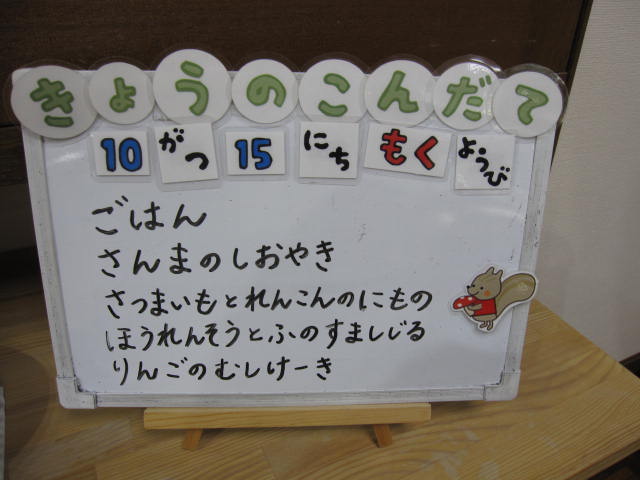 きょうのこんだて
10がつ15にちもくようび
ごはん
さんまのしおやき
さつまいもとれんこんのにもの
ほうれんそうとふのすましじる
りんごのむしけーき